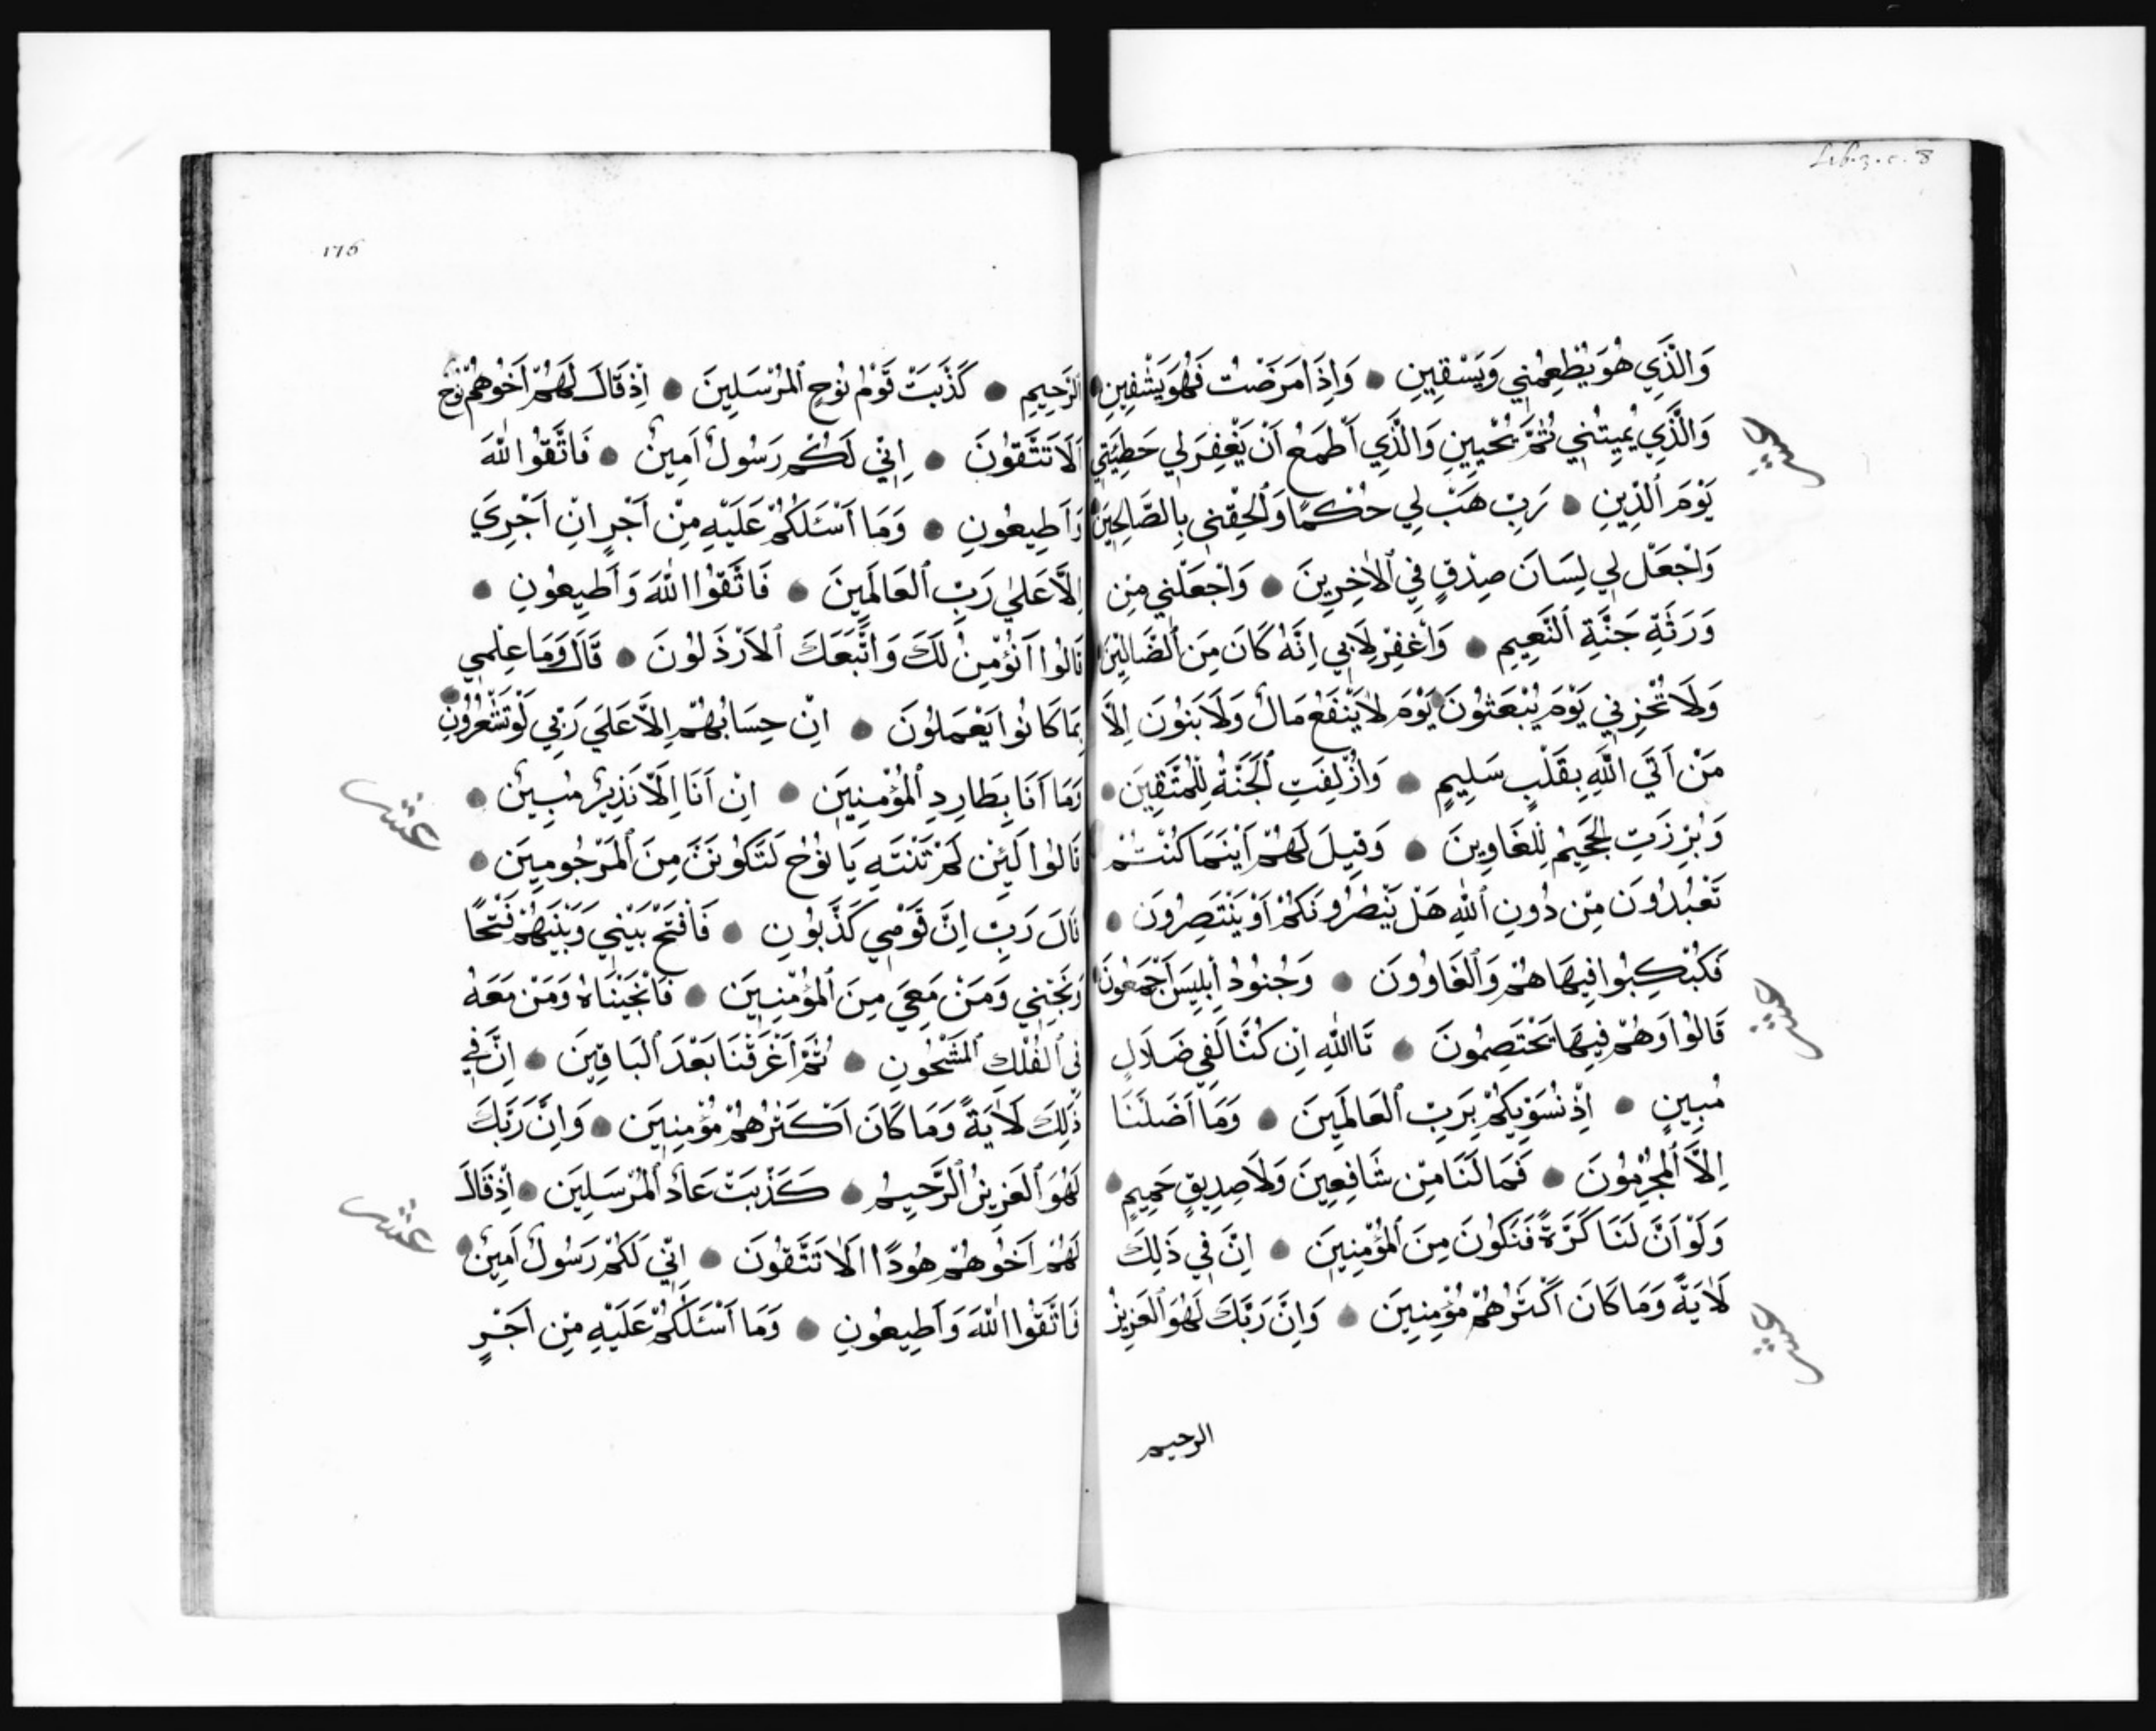 Lib. 3. c. 8
وَالَّذِي هُوَ يُطْعِمُنِي وَيَسْقِينِ وَاِذَا مَرَضْتُ فَهُوَ يَشْفِينِ
وَالَّذِي يُمِيتُنِي ثُمَّ يُحْيِينِ وَالَّذِي اَطْمَعُ اَنْ يَغْفِرَ لِي خَطِيَتِي
يَوْمَ ٱلدِّينِ رَبِّ هَبْ لِي حُكْمًا وَٱلْحِقْنِي بِالصَّالِحِينَ
وَاجْعَلْ لِي لِسَانَ صِدْقٍ فِي ٱلْاٰخِرِينَ وَاجْعَلْنِي مِنْ
وَرَثَةِ جَنَّةِ ٱلنَّعِيمِ وَٱغْفِرْ لِاَبِي اِنَّهُ كَانَ مِنَ ٱلضَّالِّينَ
وَلَا تُخْزِنِي يَوْمَ يُبْعَثُونَ يَوْمَ لَا يَنْفَعُ مَالٌ وَلَا بَنُونَ اِلَّا
مَنْ اَتَي ٱللَّهِ بِقَلْبٍ سَلِيمٍ وَاُزْلِفَتِ ٱلْجَنَّةُ لِلْمُتَّقِينَ
وَبُرِّزَتِ ٱلْجَحِيمُ لِلْغَاوِينَ وَقِيلَ لَهُمْ اَيْنَمَا كُنْتُمْ
تَعْبُدُونَ مِنْ دُونِ ٱللَّهِ هَلْ يَنْصُرُونَكُمْ اَوْ يَنْتَصِرُونَ
فَكُبْكِبُوا فِيهَا هُمْ وَٱلْغَاوُونَ وَجُنُودُ اِبْلِيسَ اَجْمَعُونَ
قَالُوا وَهُمْ فِيهَا يَخْتَصِمُونَ تَاٱللَّهِ اِنْ كُنَّا لَفِي ضَلَالٍ
مُبِينٍ اِذْ نُسَوِّيكُمْ بِرَبِّ ٱلْعَالَمِينَ وَمَا اَضَلَّنَا
اِلَّا ٱلْمُجْرِمُونَ فَمَا لَنَا مِنْ شَافِعِينَ وَلَا صِدِيقٍ حَمِيمٍ
وَلَوْ اَنَّ لَنَا كَرَّةً فَنَكُونَ مِنَ ٱلْمُؤْمِنِينَ اِنَّ فِي ذَلِكَ
لَاٰيَةً وَمَا كَانَ اَكْثَرُهُمْ مُؤْمِنِينَ وَاِنَّ رَبَّكَ لَهُوَ ٱلْعَزِيزُ
الرحيم
عشر
عشر
عشر
176
ٱلرَّحِيمِ كَذَّبَتْ قَوْمُ نُوحٍ ٱلْمُرْسَلِينَ اِذْ قَالَ لَهُمْ اَخُوهُمْ نُوحٌ
اَلَا تَتَّقُونَ اِنِّي لَكُمْ رَسُولٌ اَمِينٌ فَاتَّقُوا ٱللَّهَ
وَاَطِيعُونِ وَمَا اَسْـَٔلُكُمْ عَلَيْهِ مِنْ اَجْرٍ اِنْ اَجْرِيَ
اِلَّا عَلَي رَبِّ ٱلْعَالَمِينَ فَاتَّقُوا ٱللَّهَ وَاَطِيعُونِ
قَالُوا اَنُؤْمِنُ لَكَ وَاتَّبَعَكَ ٱلْاَرْذَلُونَ قَالَ وَمَا عِلْمِي
بِمَا كَانُوا يَعْمَلُونَ اِنْ حِسَابُهُمْ اِلَّا عَلَي رَبِّي لَوْ تَشْعُرُونَ
وَمَا اَنَا بِطَارِدِ ٱلْمُؤْمِنِينَ اِنْ اَنَا اِلَّا نَذِيرٌ مُبِينٌ
قَالُوا لَئِنْ لَمْ تَنْتَهِ يَا نُوحُ لَتَكُونَنَّ مِنَ ٱلْمَرْجُومِينَ
قَالَ رَبِّ اِنَّ قَوْمِي كَذَّبُونِ فَافْتَحْ بَيْنِي وَبَيْنَهُمْ فَتْحًا
وَنَجِّنِي وَمَنْ مَعِيَ مِنَ ٱلْمُؤْمِنِينَ فَاَنْجَيْنَاهُ وَمَنْ مَعَهُ
فِي ٱلْفُلْكِ ٱلْمَشْحُونِ ثُمَّ اَغْرَقْنَا بَعْدَ ٱلْبَاقِينَ اِنَّ فِي
ذٰلِكَ لَاٰيَةً وَمَا كَانَ اَكْثَرُهُمْ مُؤْمِنِينَ وَاِنَّ رَبَّكَ
لَهُوَ ٱلْعَزِيزُ ٱلرَّحِيمُ كَذَّبَتْ عَادٌ ٱلْمُرْسَلِينَ اِذْ قَالَ
لَهُمْ اَخُوهُمْ هُودًا اَلَا تَتَّقُونَ اِنِّي لَكُمْ رَسُولٌ اَمِينٌ
فَاتَّقُوا ٱللَّهَ وَاَطِيعُونِ وَمَا اَسْـَٔلُكُمْ عَلَيْهِ مِنْ اَجْرٍ
عشر
عشر